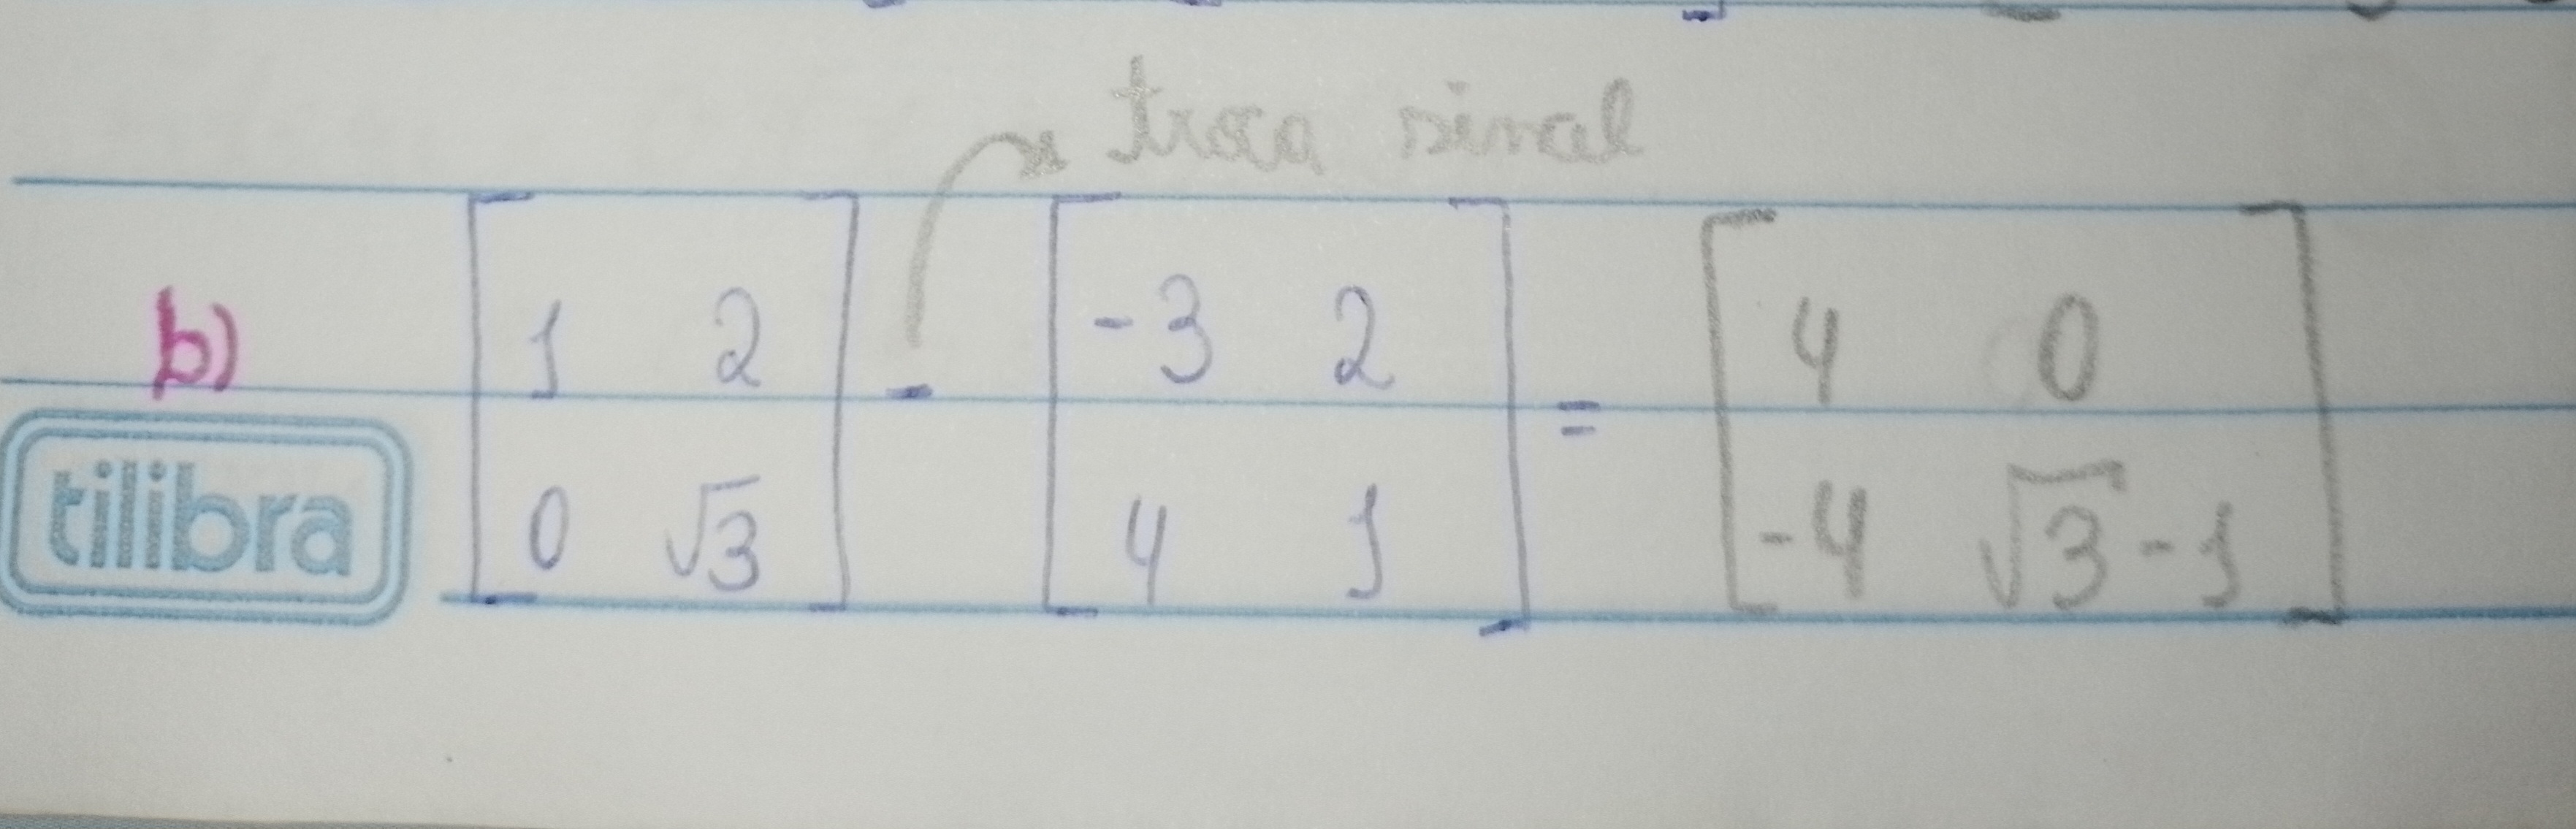 troca sinal
b) [1 2] - [-3 2] = [4 0]
[0 √3] [4 1] [-4 √3-1]
tilibra